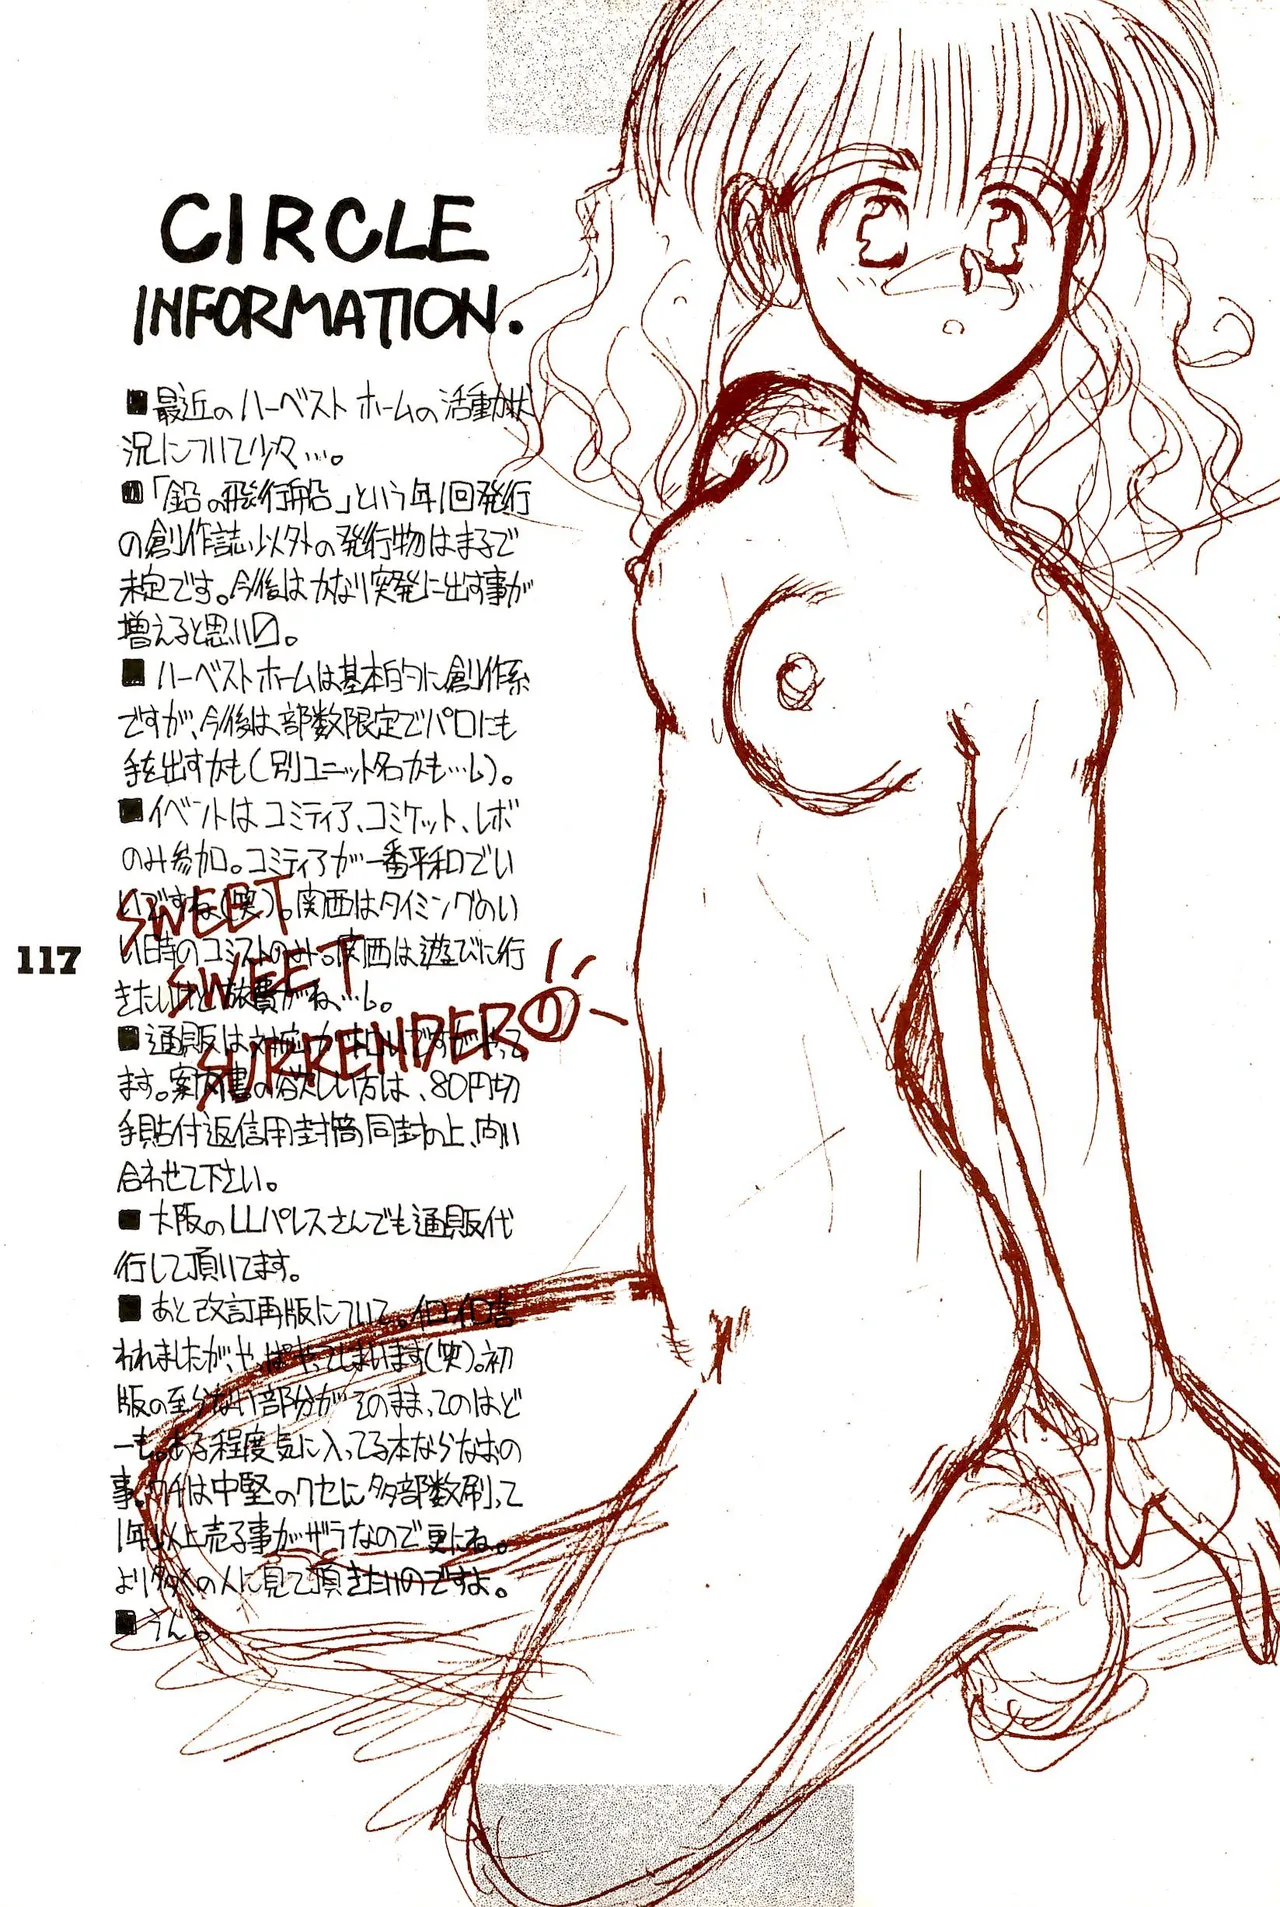 CIRCLE
INFORMATION.
■最近のハーベストホームの活動状
況について少々…。
■「鉛の飛行船」という年1回発行
の創作誌以外の発行物はまるで
未定です。今後はかなり突発に出す事が
増えると思います。
■ハーベストホームは基本的に創作系
ですが、今後は、部数限定でパロにも
手を出すかも(別ユニット名かも…)。
■イベントはコミティア、コミケット、レボ
のみ参加。コミティアが一番平和でい
いですね(笑)。関西はタイミングのい
い時のコミストのみ。関西は遊びに行
きたいけど旅費がね…。
■通販は対応が悪いですがやって
ます。案内書の欲しい方は、80円切
手貼付返信用封筒同封の上、問い
合わせて下さい。
■大阪のLLパレスさんでも通販代
行して頂いてます。
■あと改訂再版について。イロイロ言
われましたが、やっぱやってしまいます(笑)。初
版の至らない部分がそのまま、ってのはど
ーも。ある程度気に入ってる本ならなおの
事。ウチは中堅のクセに多部数刷って
1年以上売る事がザラなので更にね。
より多くの人に見て頂きたいのですよ。
■うんる
SWEET
SWEET
SURRENDER
117